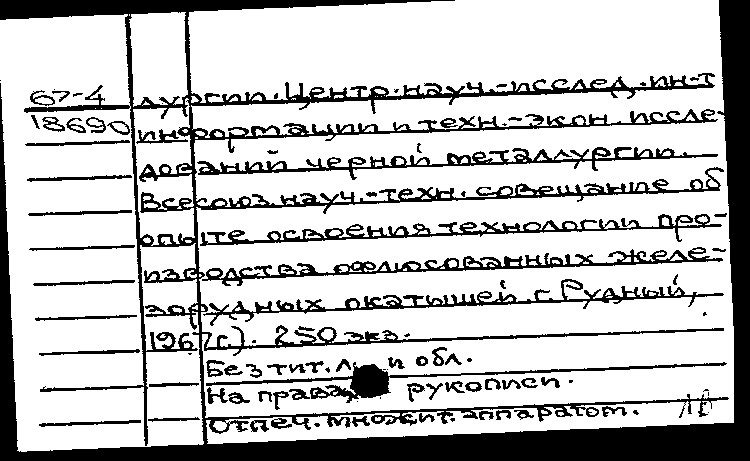 67-4 лургии. Центр. науч.-исслед. ин-т
18690 информации и техн.-экон. иссле-
дований черной металлургии.
Всесоюз. науч.-техн. совещание об
опыте освоения технологии про-
изводства офлюсованных желе-
зорудных окатышей. г. Рудный,
1967 г.). 250 экз.
Без тит. л. и обл.
На правах рукописи.
Отпеч. множит. аппаратом.